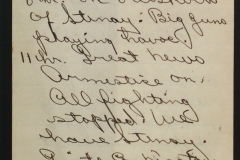 of Stenay. Big guns
playing havoc.
11 hr. Great news
Armestice on.
All fighting
stopped. We
have Stenay.